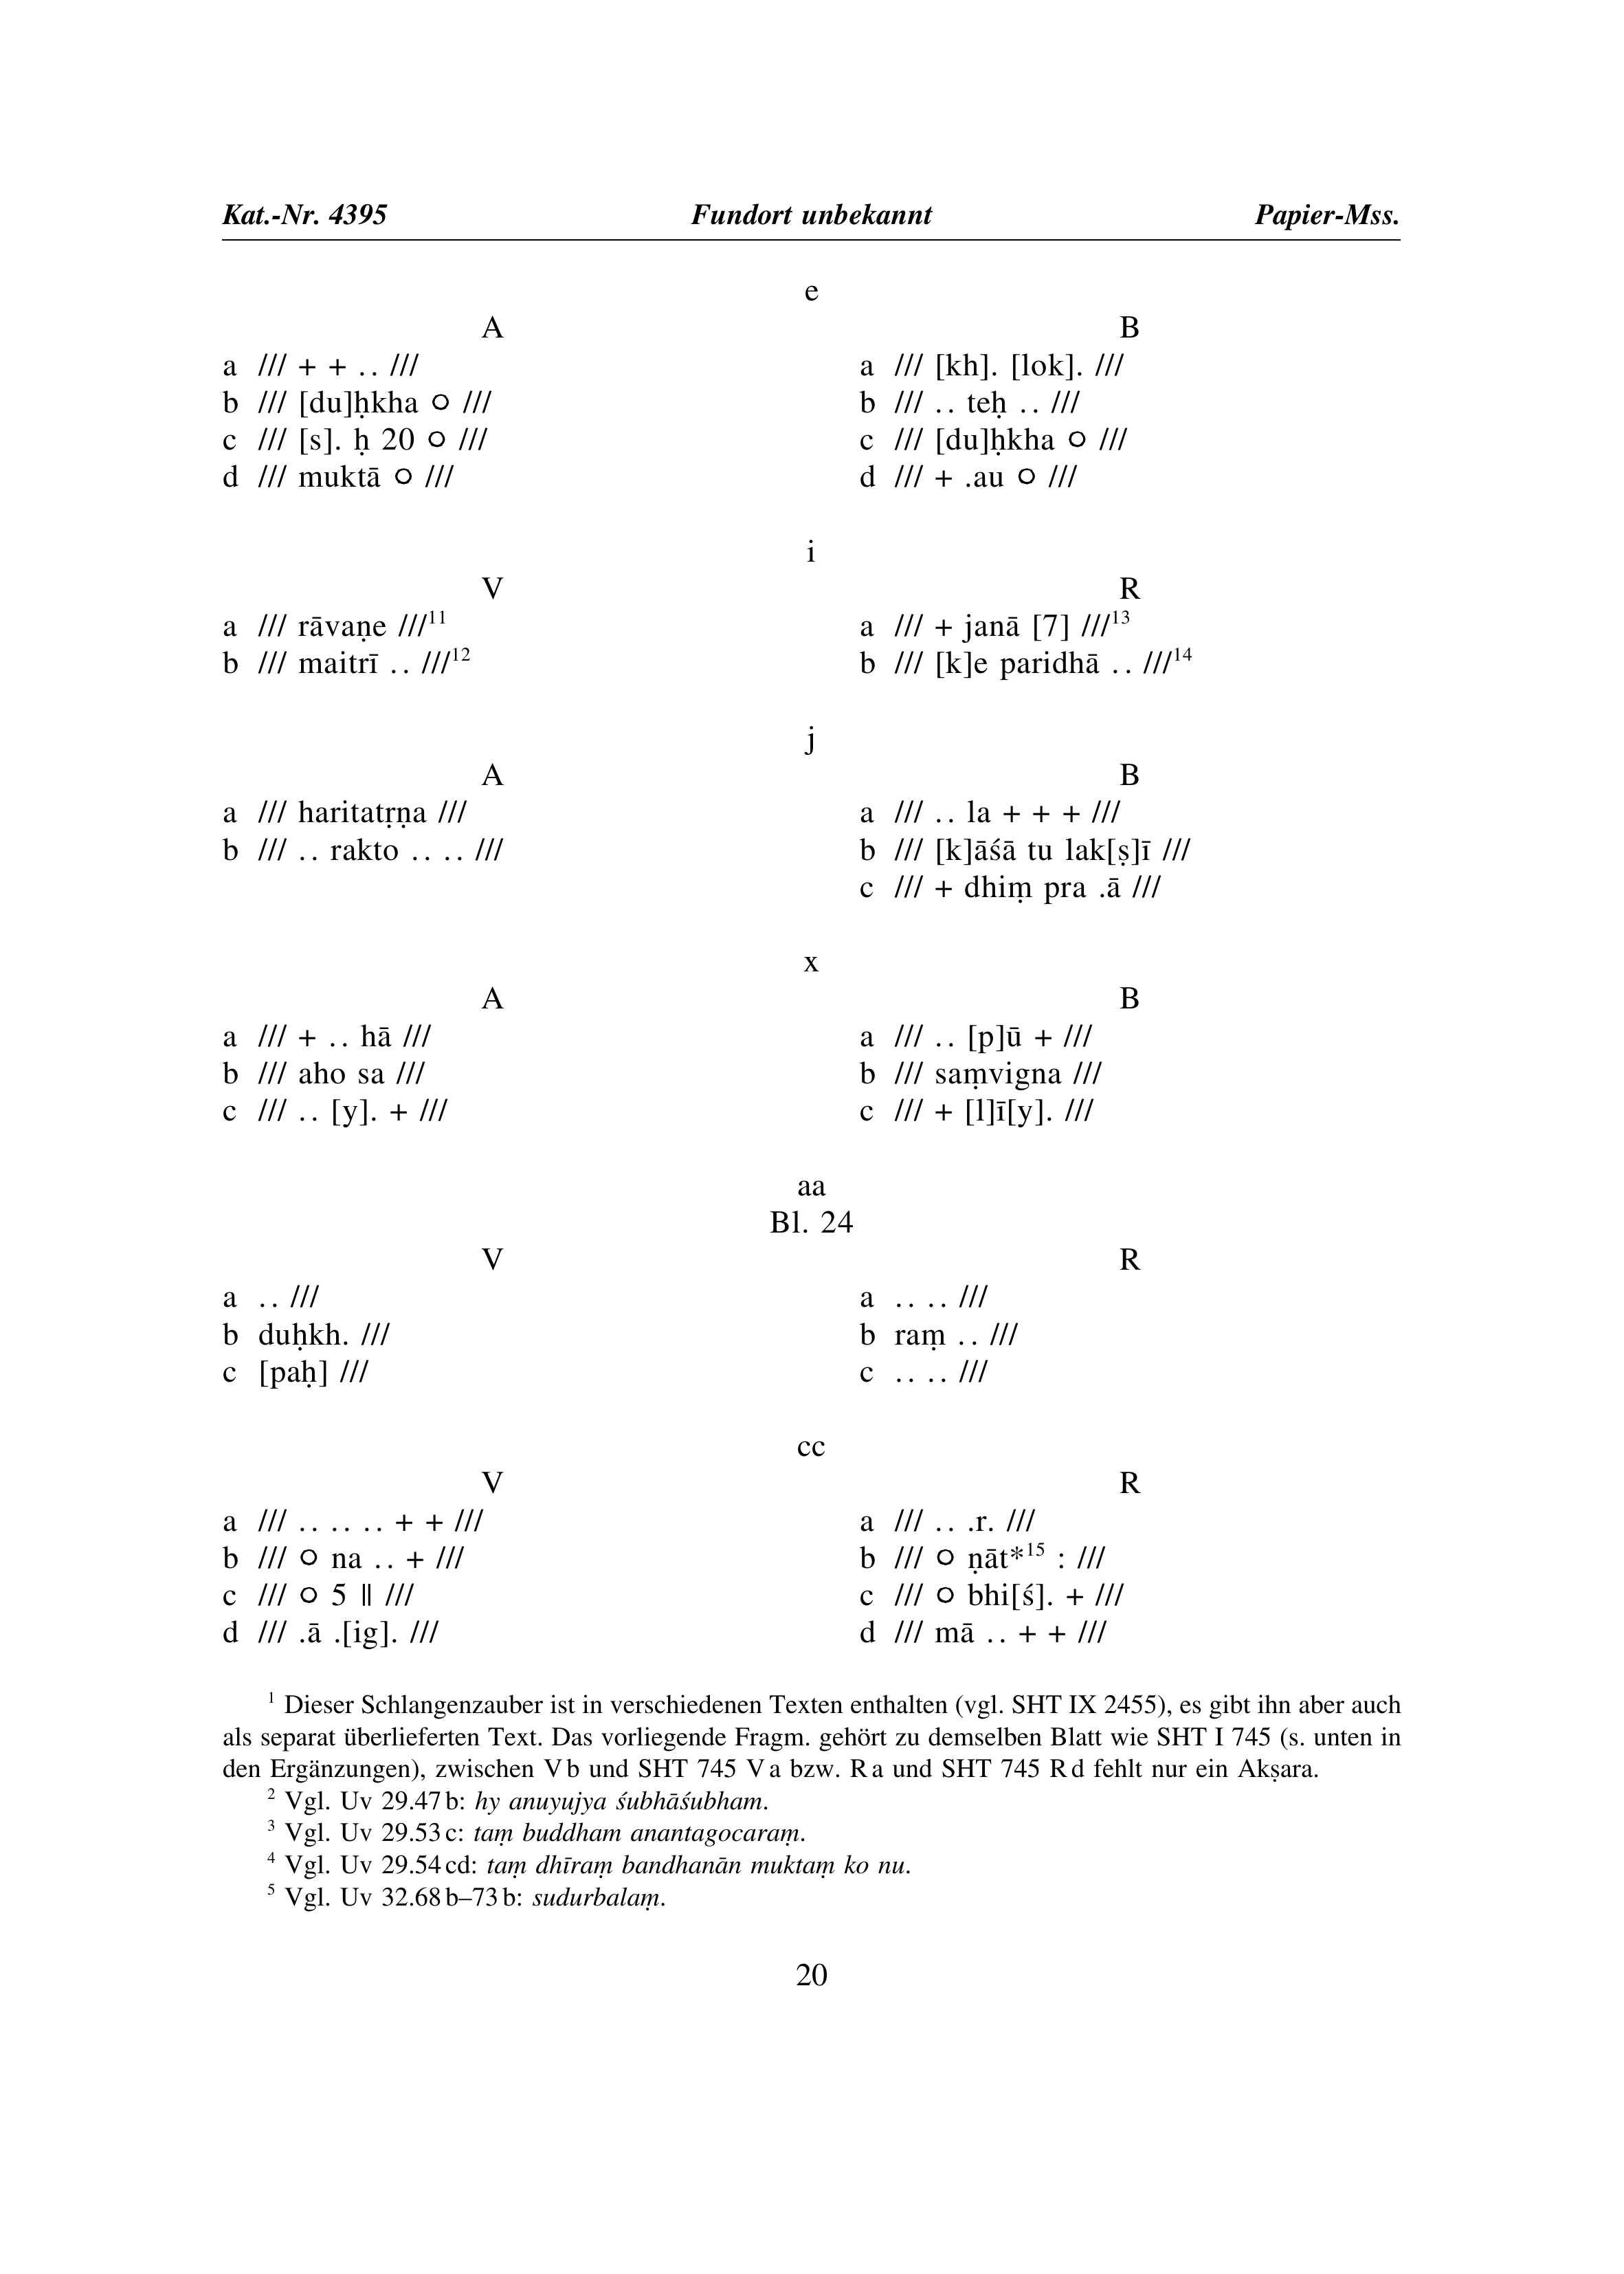 Kat.-Nr. 4395 Fundort unbekannt Papier-Mss.
e
A B
a /// + + .. /// a /// [kh]. [lok]. ///
b /// [du]ḥkha ○ /// b /// .. teḥ .. ///
c /// [s]. ḥ 20 ○ /// c /// [du]ḥkha ○ ///
d /// muktā ○ /// d /// + .au ○ ///
i
V R
a /// rāvaṇe ///¹¹ a /// + janā [7] ///¹³
b /// maitrī .. ///¹² b /// [k]e paridhā .. ///¹⁴
j
A B
a /// haritatṛṇa /// a /// .. la + + + ///
b /// .. rakto .. .. /// b /// [k]āśā tu lak[ṣ]ī ///
c /// + dhiṃ pra .ā ///
x
A B
a /// + .. hā /// a /// .. [p]ū + ///
b /// aho sa /// b /// saṃvigna ///
c /// .. [y]. + /// c /// + [l]ī[y]. ///
aa
Bl. 24
V R
a .. /// a .. .. ///
b duḥkh. /// b raṃ .. ///
c [paḥ] /// c .. .. ///
cc
V R
a /// .. .. .. + + /// a /// .. .r. ///
b /// ○ na .. + /// b /// ○ ṇāt*¹⁵ : ///
c /// ○ 5 ‖ /// c /// ○ bhi[ś]. + ///
d /// .ā .[ig]. /// d /// mā .. + + ///
¹ Dieser Schlangenzauber ist in verschiedenen Texten enthalten (vgl. SHT IX 2455), es gibt ihn aber auch
als separat überlieferten Text. Das vorliegende Fragm. gehört zu demselben Blatt wie SHT I 745 (s. unten in
den Ergänzungen), zwischen V b und SHT 745 V a bzw. R a und SHT 745 R d fehlt nur ein Akṣara.
² Vgl. Uv 29.47 b: hy anuyujya śubhāśubham.
³ Vgl. Uv 29.53 c: taṃ buddham anantagocaraṃ.
⁴ Vgl. Uv 29.54 cd: taṃ dhīraṃ bandhanān muktaṃ ko nu.
⁵ Vgl. Uv 32.68 b–73 b: sudurbalaṃ.
20